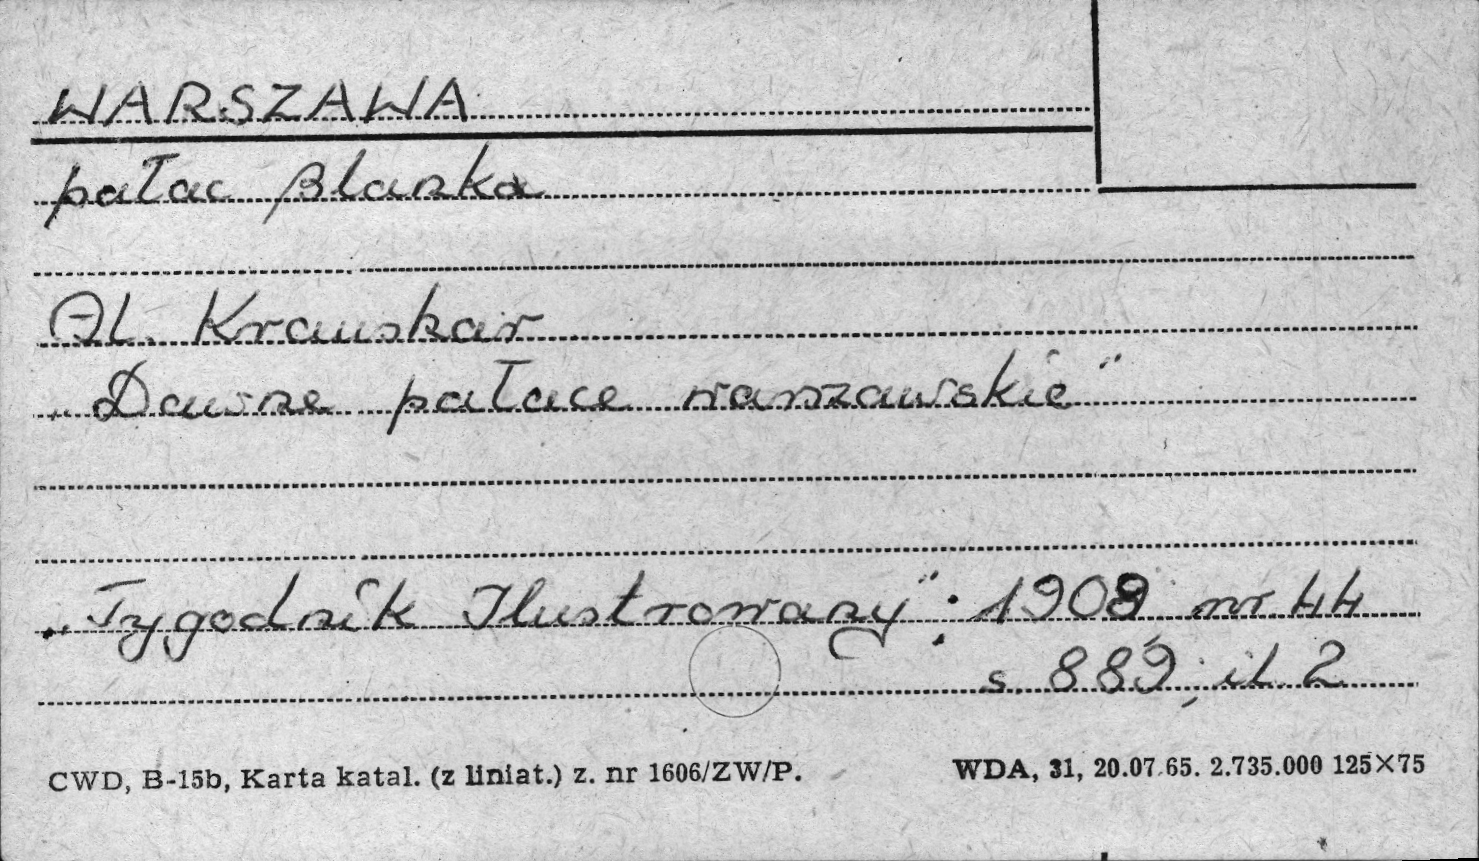 WARSZAWA
pałac Blanka
Al. Kraushar
„Dawne pałace warszawskie"
„Tygodnik Ilustrowany": 1908 nr 44
s. 889; il. 2
CWD, B-15b, Karta katal. (z liniat.) z. nr 1606/ZW/P.
WDA, 31, 20.07.65. 2.735.000 125×75